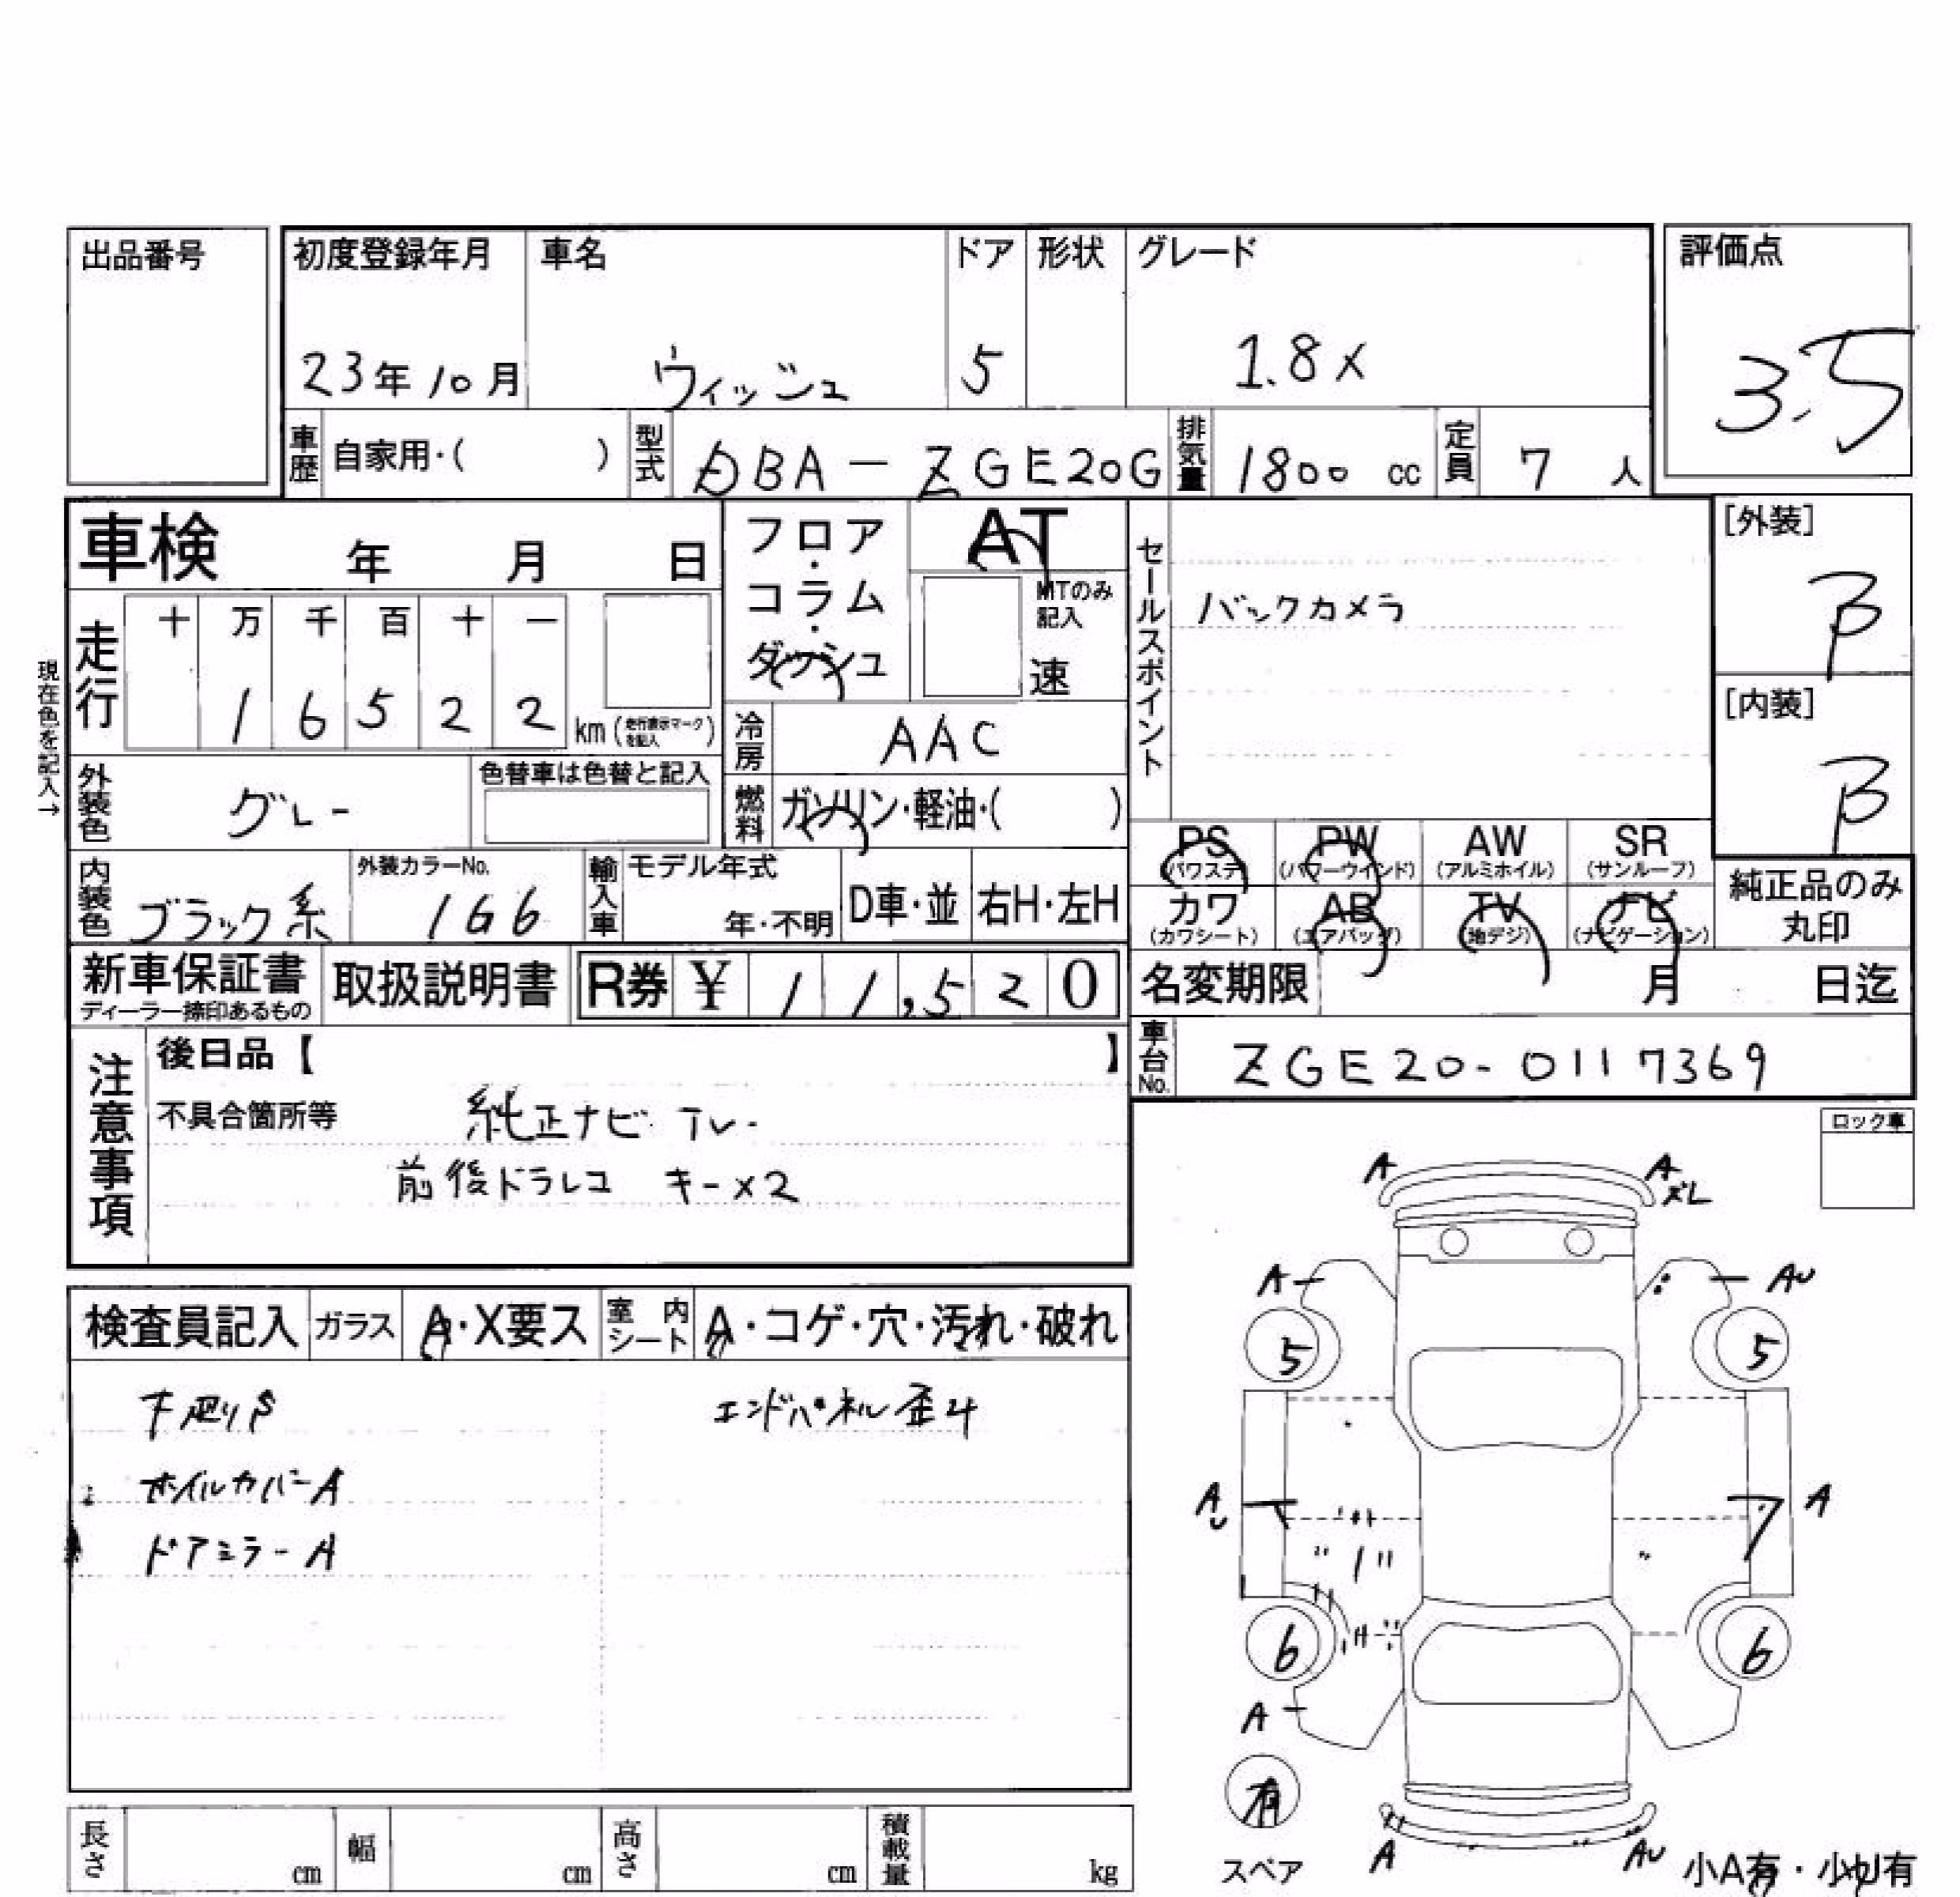 出品番号
初度登録年月 車名 ドア 形状 グレード 評価点
23年10月 ウィッシュ 5 1.8X 3.5
車歴 自家用・( ) 型式 DBA-ZGE20G 排気量 1800 cc 定員 7 人
車検 年 月 日
フロア・コラム・ダッシュ
AT
MTのみ記入
速
セールスポイント
バックカメラ
[外装]
B
[内装]
B
現在色を記入→
走行 十 万 千 百 十 一
1 6 5 2 2 km (走行表示マークを記入)
冷房 AAC
外装色 グレー 色替車は色替と記入
燃料 ガソリン・軽油・( )
PS (パワステ) PW (パワーウインド) AW (アルミホイル) SR (サンルーフ)
カワ (カワシート) AB (エアバッグ) TV (地デジ) ナビ (ナビゲーション)
純正品のみ丸印
内装色 ブラック系 外装カラーNo. 1G6 輸入車 モデル年式 年・不明 D車・並 右H・左H
新車保証書 ディーラー捺印あるもの 取扱説明書 R券 ¥ 11,520
名変期限 月 日迄
車台No. ZGE20-0117369
注意事項
後日品【 】
不具合箇所等 純正ナビ テレ-
前後ドラレコ キー×2
ロック車
検査員記入 ガラス A・X要ス 室内シート A・コゲ・穴・汚れ・破れ
下廻りS エンドパネル歪み
ホイルカバーA
ドアミラーA
A A ズレ
A AU
5 5
AU A
6 6
A
有
スペア
A AU
小A有・小U有
長さ cm 幅 cm 高さ cm 積載量 kg